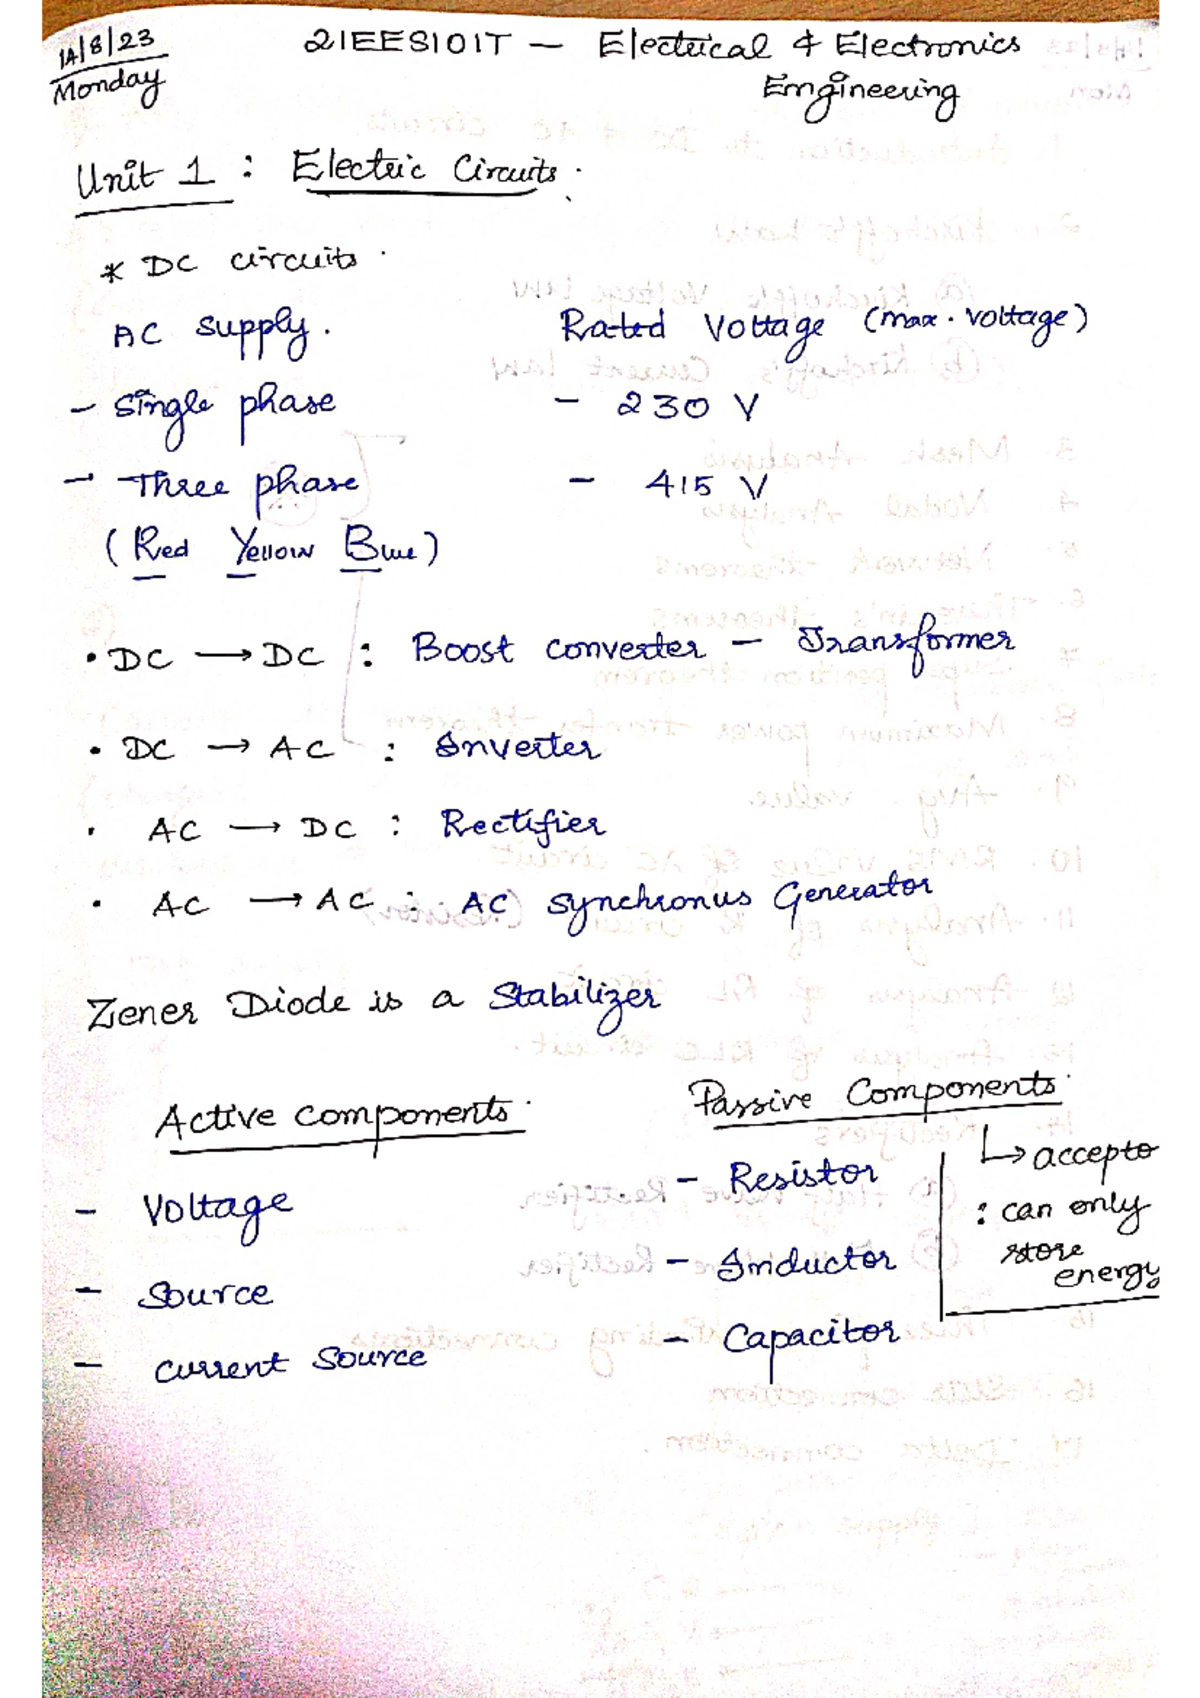 14/8/23
Monday
21EES101T — Electrical & Electronics
Engineering
Unit 1 : Electric Circuits.
* DC circuits.
AC supply. Rated Voltage (max. voltage)
- Single phase - 230 V
- Three phase - 415 V
(Red Yellow Blue)
• DC → DC : Boost converter - Transformer
• DC → AC : Inverter
• AC → DC : Rectifier
• AC → AC : AC Synchronus Generator
Zener Diode is a Stabilizer
Active components. Passive Components.
- Voltage - Resistor
- Source - Inductor
- Current Source - Capacitor
↳ accepto
: can only
store
energy